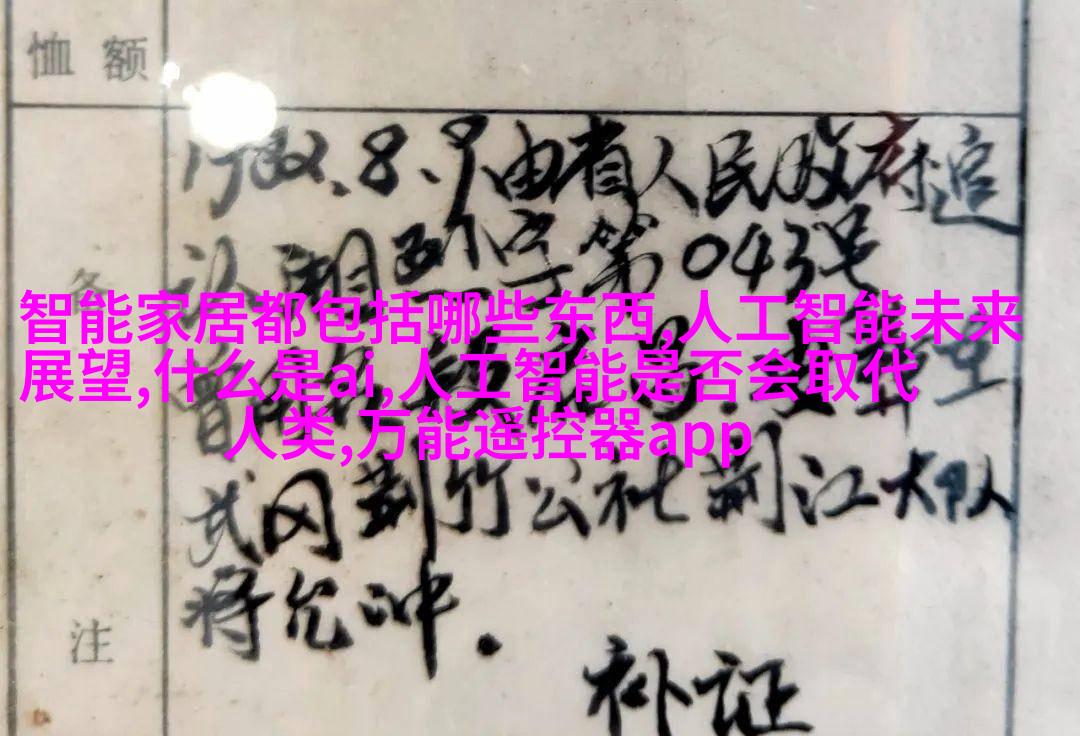 恤额
1982.8.9由省人民政府追
认湖烈字第043号
备
智能家居都包括哪些东西,人工智能未来
展望,什么是ai,人工智能是否会取代
人类,万能遥控器app
武冈荆竹公社荆江大队
将允冲.
注
补证